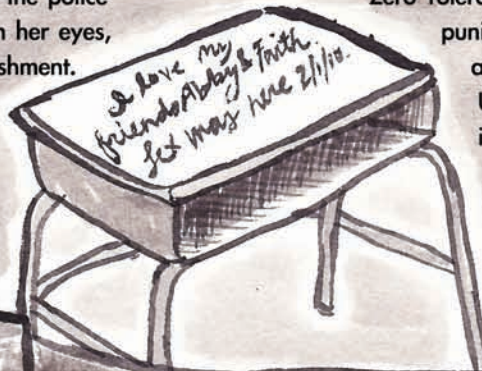 the police
n her eyes,
shment.
Zero Tolera
puni
a
i
I love my
friends Abby & Faith.
Lex was here 2/1/10.